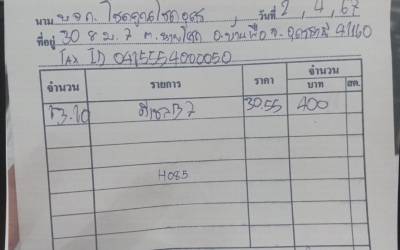 นาม บจก. โชคอุดมโชคอุดร, วันที่ 2, 4, 67
ที่อยู่ 308 ม.7 ต. อ.บ้านผือ จ.อุดรธานี 41160
TAX ID 0415554000050
จำนวน รายการ ราคา จำนวน
บาท สต.
13.10 ดีเซลB7 30.55 400
H085